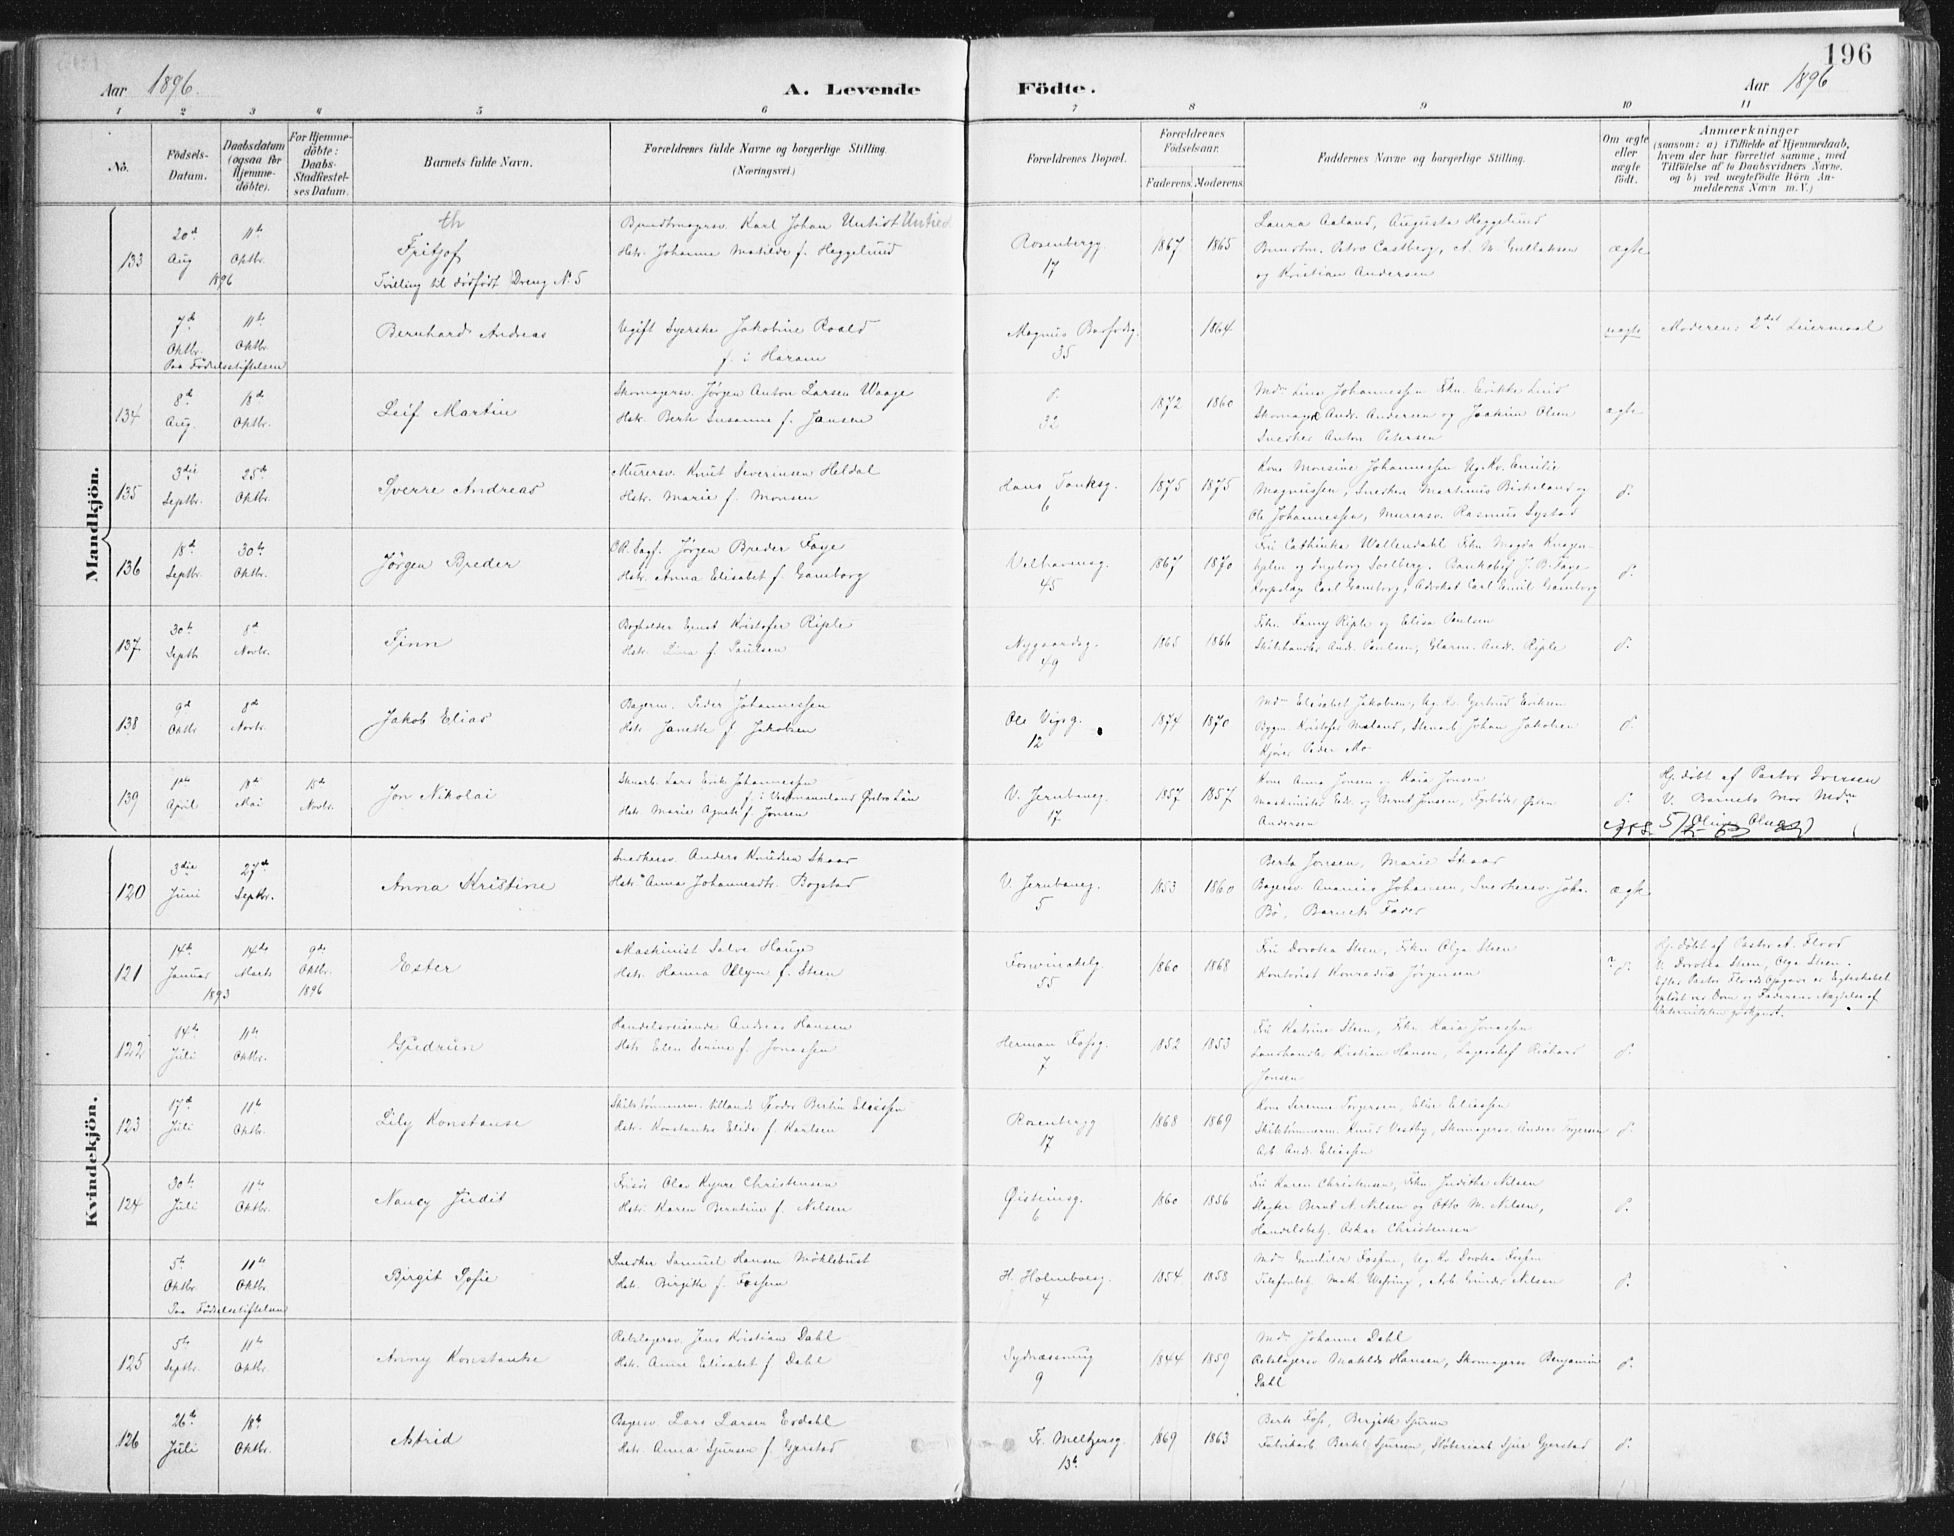 196
Aar 1896.
A. Levende Födte.
Aar 1896
1 2 3 4 5 6 7 8 9 10 11
No.
Födsels-Datum.
Daabsdatum (ogsaa for Hjemme-döbte).
For Hjemme-döbte: Daabs-Stadfæstel-ses Datum.
Barnets fulde Navn.
Forældrenes fulde Navne og borgerlige Stilling. (Næringsvei.)
Forældrenes Bopæl.
Forældrenes Födselsaar.
Faderens. Moderens.
Faddernes Navne og borgerlige Stilling.
Om ægte eller uægte født.
Anmærkninger
(saasom: a) i Tilfælde af Hjemmedaab,
hvem der har forrettet samme, med
Tilföielse af to Daabsvidners Navne.
og b) ved uægtefödte Börn An-
melderens Navn m. V.)
Mandkjön.
133 20d Aug 1896 11te Oktbr.
th
Fritjof
Tvilling til dødfødt Dreng No 5
Bundtmagersv. Karl Johan Untidt
Hstr. Johanna Matilde f. Heggelund
Rosenbergg. 17
1867 1865
Laura Aaland, Augusta Heggelund
Petro Castberg, A. M.
og Kristian Andersen
ægte
7d Oktbr. 11te Oktbr.
Paa Fødselsstiftelsen
Bernhard Andreas
Ugift Syerske Jakobine Roald
f. i Haram
Magnus Barfodsg. 35
1864
uægte
Moderens 2det Leiermaal
134 8d Aug. 18d Oktbr.
Leif Martin
Skomagersv. Jørgen Anton Larsen Waage
Hstr. Berte Susanne f. Jansen
d. 32
1872 1860
Mdm Lina Johannessen Frkn. Erikke Lind
Skomager Andr. Andersen og Joakim Olsen
Snedker Anton Petersen
ægte
135 3die Septbr. 25d Oktbr.
Sverre Andreas
Murersv. Knut Severinsen Heldal
Hstr. Marie f. Monsen
Hans Tanksg. 6
1875 1875
Kone Monsine Johannessen Ug. Kv. Emilie
Magnussen, Snedker Martinus Birkeland og
Ole Johannessen, Murersv. Rasmus Systad
d.
136 18d Septbr. 30te Oktbr.
Jörgen Breder
O.R. Sagf. Jørgen Breder Faye
Hstr. Anna Elisabet f. Gamborg
Welhavensg. 45
1867 1870
Fru Cathinka Wallendahl Frkn Magda Knagen-
hjelm og Ingeborg Solberg. Bankchef J. B. Faye
Carl Gamborg, Advokat Carl Emil Gamborg
d.
137 30te Septbr 8d Novbr.
Finn
Bogholder Ernst Kristofer Riple
Hstr. Lina f. Paulsen
Nygaardsg. 49
1865 1866
Frkn. Fanny Riple og Elisa Paulsen
Andr. Paulsen, Glarm. Andr. Riple
d.
138 9d Oktbr 8d Novbr.
Jakob Elias
Bagerm. Peder Johannessen
Hstr. Janette f. Jakobsen
Ole Vigsg. 12
1874 1870
Mdm Elisabet Jakobsen, Ug. K. Gertrud Eriksen
Bygm Kristofer Maland, Stenarb Johan Jakobsen
Peder Mo
d.
139 1ste April 9d Mai 15d Novbr.
Jon Nikolai
Lars Erik Johannessen
f. i Vestmannland Örebro Län
Hstr. Marie Agnete f. Jonsen
V. Jernbaneg. 17
1857 1857
Kone Anna Jonsen og Kaia Jonsen
Maskinister Edv. og Bernt Jensen, Østen
Andersen
d.
Hj. døbt af Pastor Iversen
V. Barnets Mor Mdm
Olsen
Kvindekjön.
120 3die Juni 27de Septbr.
Anna Kristine
Snedkersv. Anders Knudsen Skaar
Hstr. Anna Johannesdtr. Bogstad
V. Jernbaneg. 5
1853 1860
Berta Jonsen, Marie Skaar
Bagersv. Ananias Johansen, Snedkersv. Johs.
Bø, Barnets Fader
ægte
121 14d Januar 1893 14de Marts 9de Oktbr. 1896
Ester
Maskinist Salve Hauge
Hstr. Hanna f. Steen
55
1860 1868
Fru Dorotea Steen, Frkn Olga Steen
Kontorist Konradis Jørgensen
? d.
Hj. døbt af Pastor A. Flood
V. Dorotea Steen, Olga Steen.
Efter Pastor Floods Opgave er Egteskabet
opløst ved Dom og Faderens Nægtelse af
Paterniteten godkjendt.
122 14de Juli 11te Oktbr.
Gudrun
Handelsreisende Andreas Hansen
Hstr. Elen Serine f. Jonassen
Herman Fossg. 7
1852 1853
Fru Katrine Steen, Frkn Kaia Jonassen
Kristian Hansen, Lagerchef Richard
Jonsen
d.
123 17d Juli 11te Oktbr.
Lily Konstanse
Skibstømmerm. Peder Bertin Eliessen
Hstr. Konstanse Elide f. Karlsen
Rosenbergg 17
1868 1869
Kone Serenne Torgersen, Elise Eliessen
Skibstømmerm. Knud Vestby, Skomagersv. Anders Torgersen
Arb. And. Eliessen
d.
124 30te Juli 11te Oktbr.
Nancy Judit
Frisör Olav Kyvre Christensen
Hstr. Karen Berntine f. Nilsen
Øisteinsg. 6
1860 1856
Fru Karen Christensen, Frkn. Judithe Nilsen
Slagter Bernt N. Nilsen og Otto M. Nilsen,
Handelsbetj. Oskar Christensen
d.
5te Oktbr 11te Oktbr
Paa Fødselsstiftelsen
Birgit Sofie
Snedker Samuel Hansen Möklebust
Hstr. Birgitte f. Fossen
H. Holmboesg. 4
1854 1858
Mdm Fossen, Ug. Kv Dorotea Fossen
Telefonbetj. Arb. Gunder Nilsen
d.
125 5te Septbr. 11te Oktbr
Anny Konstanke
Rebslagersv. Jens Kristian Dahl
Hstr. Anne Elisabet f. Dahl
Sydnæssmug 9
1844 1859
Mdm Johanne Dahl
Rebslagersv. Matilde Hansen, Skomagersv. Benjamin
Dahl
d.
126 26te Juli 18te Oktbr.
Astrid
Bagersv. Lars Larsen Evdahl
Hstr. Anna Sjursen f. Gjerstad
Fr. Meltzersg. 13b.
1869 1863
Berte Foss, Birgitte Sjursen
Fabrikarb. Bertel Sjursen, Støberiarb. Sjur Gjerstad
d.